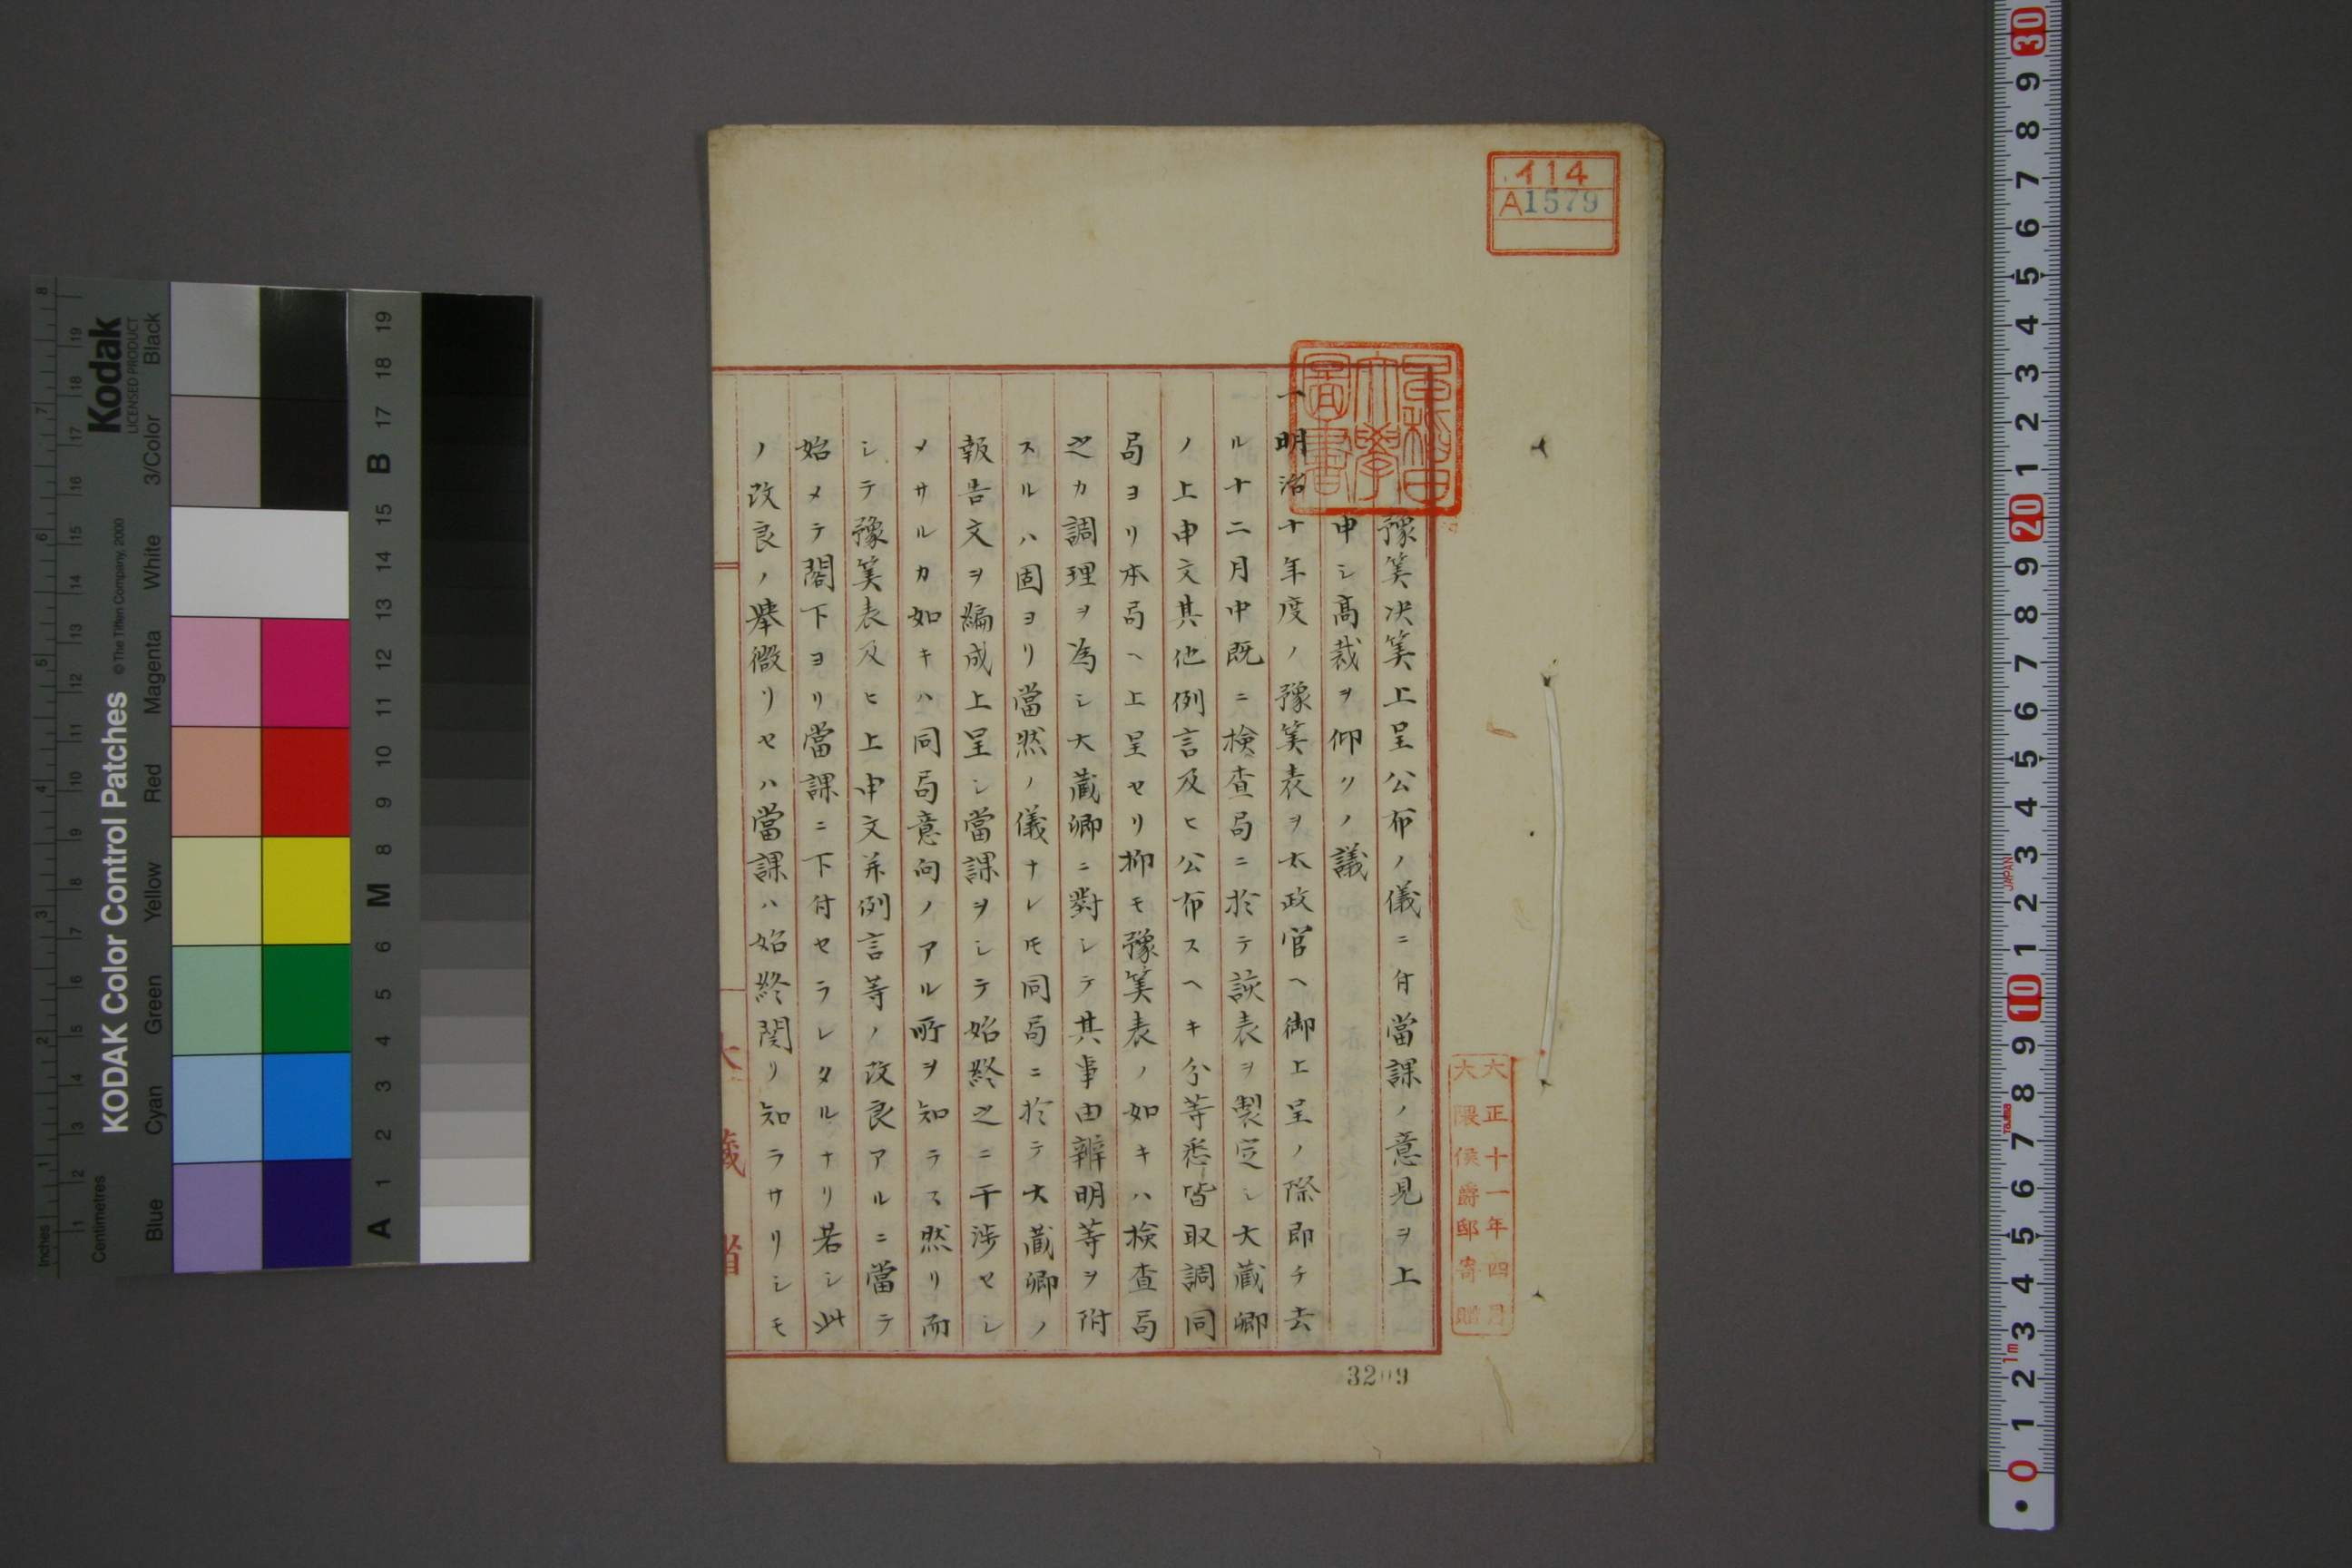 イ14
A1579
早稲田
大學
圖書
豫筭决筭上呈公布ノ儀ニ付當課ノ意見ヲ上
申シ髙裁ヲ仰クノ議
一明治十年度ノ豫筭表ヲ太政官ヘ御上呈ノ際即チ去
ル十二月中既ニ検査局ニ於テ該表ヲ製定シ大蔵卿
ノ上申文其他例言及ヒ公布スヘキ分等悉皆取調同
局ヨリ本局ヘ上呈セリ抑モ豫筭表ノ如キハ検査局
之カ調理ヲ為シ大蔵卿ニ對シテ其事由辨明等ヲ附
スルハ固ヨリ當然ノ儀ナレ𪜈同局ニ於テ大蔵卿ノ
報告文ヲ編成上呈シ當課ヲシテ始終之ニ干渉セシ
メサルカ如キハ同局意向ノアル所ヲ知ラス然リ而
シテ豫筭表及ヒ上申文并例言等ノ改良アルニ當テ
始メテ閣下ヨリ當課ニ下付セラレタルナリ若シ此
ノ改良ノ擧微リセハ當課ハ始終関リ知ラサリシモ
大藏省
大正十一年四月
大隈侯爵邸寄贈
3209
KODAK Color Control Patches
©The Tiffen Company, 2000
Kodak
LICENSED PRODUCT
Inches
Centimetres
Blue
Cyan
Green
Yellow
Red
Magenta
White
3/Color
Black
A 1 2 3 4 5 6 M 8 9 10 11 12 13 14 15 B 17 18 19
JAPAN
Tajima
1m
0 1 2 3 4 5 6 7 8 9 10 1 2 3 4 5 6 7 8 9 20 1 2 3 4 5 6 7 8 9 30